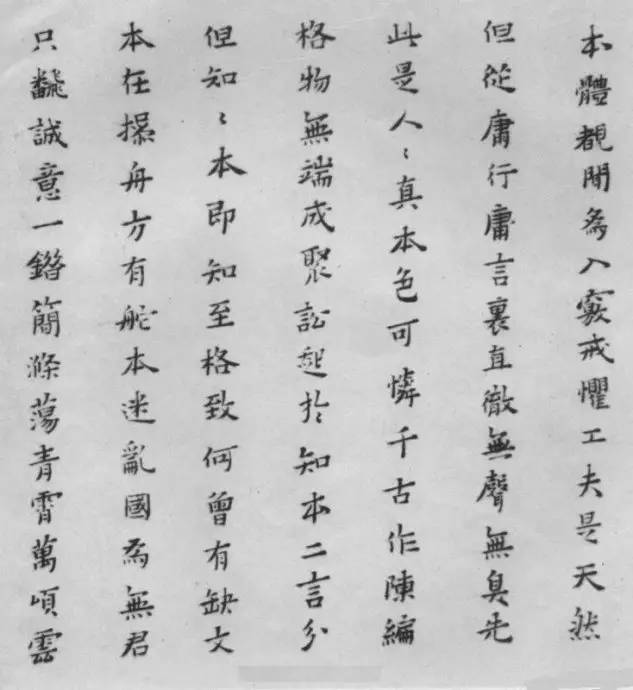 本體覩聞為入竅戒懼工夫是天然
但從庸行庸言裏直徹無聲無臭先
此是人〻真本色可憐千古作陳編
格物無端成聚訟起於知本二言分
但知〻本即知至格致何曾有缺文
本在操舟方有舵本迷亂國為無君
只飜誠意一錯簡滌蕩青霄萬頃雲